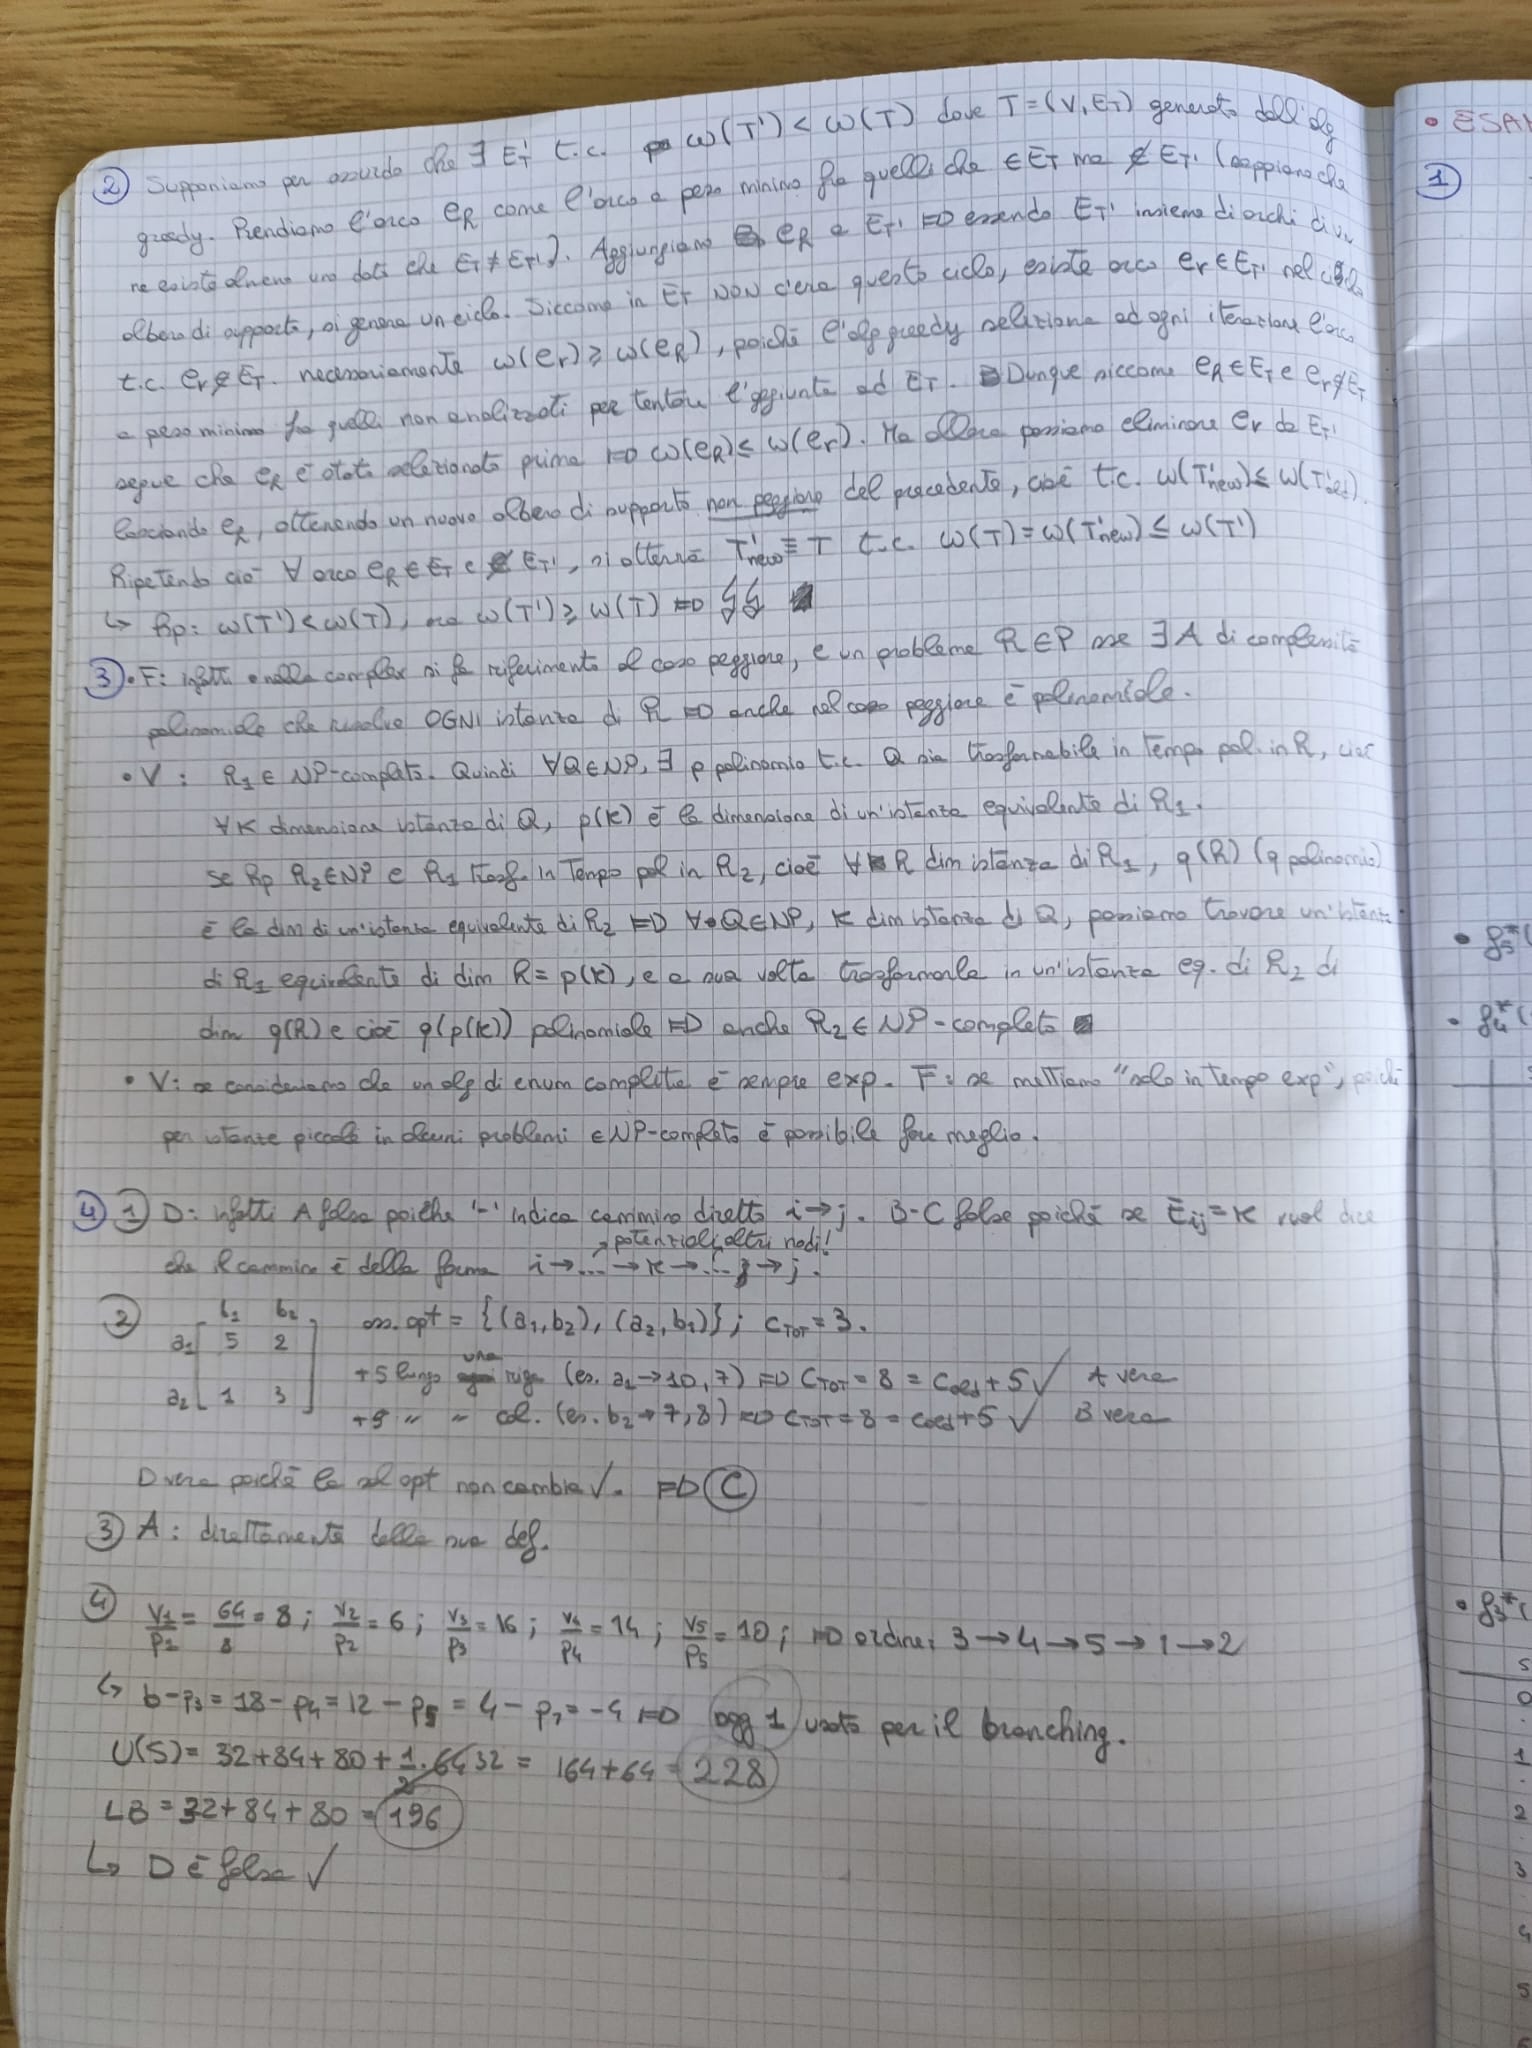 ② Supponiamo per assurdo che ∃ E_T' t.c. w(T') < w(T) dove T=(V,E_T) generato dall'alg
greedy. Prendiamo l'arco e_R come l'arco a peso minimo fra quelli che ∈ E_T ma ∉ E_T' (sappiamo che
ne esiste almeno uno dato che E_T ≠ E_T'). Aggiungiamo e_R a E_T' => essendo E_T' insieme di archi di un
albero di supporto, si genera un ciclo. Siccome in E_T NON c'era questo ciclo, esiste arco e_r ∈ E_T' nel ciclo
t.c. e_r ∉ E_T. necessariamente w(e_r) ≥ w(e_R), poiché l'alg greedy seleziona ad ogni iterazione l'arco
a peso minimo fra quelli non analizzati per tentare l'aggiunta ad E_T. Dunque siccome e_R ∈ E_T e e_r ∉ E_T
segue che e_R è stato selezionato prima => w(e_R) ≤ w(e_r). Ma allora possiamo eliminare e_r da E_T'
lasciando e_R, ottenendo un nuovo albero di supporto non peggiore del precedente, cioè t.c. w(T'new) ≤ w(T'old).
Ripetendo ciò ∀ arco e_R ∈ E_T e ∉ E_T', si otterrà T'new ≡ T t.c. w(T) = w(T'new) ≤ w(T')
↳ Hp: w(T') < w(T), ma w(T') ≥ w(T) => ↯↯
③ • F: infatti nella comples si fa riferimento al caso peggiore, e un problema R ∈ P sse ∃ A di complessità
polinomiale che risolve OGNI istanza di R => anche nel caso peggiore è polinomiale.
• V: R_1 ∈ NP-completo. Quindi ∀Q∈NP, ∃ p polinomio t.c. Q sia trasformabile in tempo pol. in R, cioè
∀K dimensione istanza di Q, p(K) è la dimensione di un'istanza equivalente di R_1.
Se Hp R_2∈NP e R_1 trasf. in tempo pol in R_2, cioè ∀ R dim istanza di R_1, q(R) (q polinomio)
è la dim di un'istanza equivalente di R_2 => ∀ Q∈NP, K dim istanza di Q, possiamo trovare un'istanza
di R_1 equivalente di dim R = p(K), e a sua volta trasformarla in un'istanza eq. di R_2 di
dim q(R) e cioè q(p(K)) polinomiale => anche R_2 ∈ NP-completo
• V: se consideriamo che un alg di enum completa è sempre exp. F: se mettiamo "solo in tempo exp", poiché
per istanze piccole in alcuni problemi ∈ NP-completo è possibile fare meglio.
④ ① D: infatti A falsa poiché '-' indica cammino diretto i→j. B-C false poiché se E_ij = K vuol dire
→ potenziali altri nodi!
che il cammino è della forma i→...→K→...→j.
② b_1 b_2
a_1 [ 5 2 ] ass. opt = {(a_1,b_2), (a_2,b_1)}; C_TOT = 3.
una
+5 lungo riga (es. a_1→10,7) => C_TOT = 8 = C_old + 5 ✓ A vera
a_2 [ 1 3 ]
+5 " " col. (es. b_2→7,8) => C_TOT = 8 = C_old + 5 ✓ B vera
D vera poiché la sol opt non cambia ✓. => Ⓒ
③ A: direttamente dalla sua def.
④ V_1/P_1 = 64/8 = 8; V_2/P_2 = 6; V_3/P_3 = 16; V_4/P_4 = 14; V_5/P_5 = 10; => ordine: 3→4→5→1→2
↳ b-p_3 = 18 - p_4 = 12 - p_5 = 4 - p_1 = -4 => ogg 1 usato per il branching.
U(S) = 32+84+80+1/2·64 32 = 164+64 = 228
LB = 32+84+80 = 196
↳ D è falsa ✓
• ESAM
①
• f_5*(
• f_4*(
• f_3*(
S
0
1
2
3
4
5